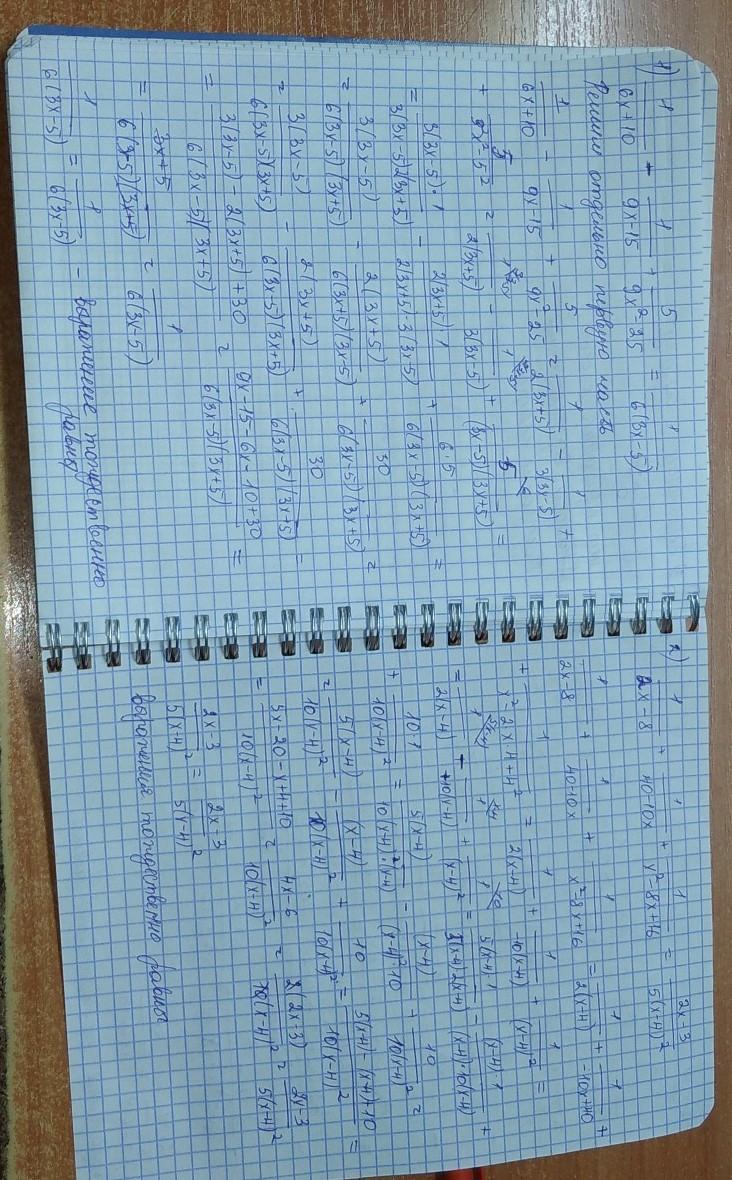 1) 1/(6x+10) - 1/(9x-15) + 5/(9x²-25) = 1/(6(3x-5))
Решим отдельно первую часть
1/(6x+10) - 1/(9x-15) + 5/(9x²-25) = 1/(2(3x+5)) - 1/(3(3x-5)) +
+ 5/(9x²-5²) = 1/(2(3x+5)) - 1/(3(3x-5)) + 5/((3x-5)(3x+5)) =
= 3(3x-5)·1/(3(3x-5)2(3x+5)) - 2(3x+5)·1/(2(3x+5)·3(3x-5)) + 6·5/(6(3x-5)(3x+5)) =
= 3(3x-5)/(6(3x-5)(3x+5)) - 2(3x+5)/(6(3x+5)(3x-5)) + 30/(6(3x-5)(3x+5)) =
= 3(3x-5)/(6(3x-5)(3x+5)) - 2(3x+5)/(6(3x-5)(3x+5)) + 30/(6(3x-5)(3x+5)) =
= (3(3x-5)-2(3x+5)+30)/(6(3x-5)(3x+5)) = (9x-15-6x-10+30)/(6(3x-5)(3x+5)) =
= (3x+5)/(6(3x-5)(3x+5)) = 1/(6(3x-5))
1/(6(3x-5)) = 1/(6(3x-5)) - выражение тождественно
равны
2) 1/(2x-8) + 1/(40-10x) + 1/(x²-8x+16) = (2x-3)/(5(x-4)²)
1/(2x-8) + 1/(40-10x) + 1/(x²-8x+16) = 1/(2(x-4)) + 1/(-10x+40) +
+ 1/(x²-2x·4+4²) = 1/(2(x-4)) + 1/(-10(x-4)) + 1/((x-4)²) =
= 1/(2(x-4)) - 1/(10(x-4)) + 1/((x-4)²) = 5(x-4)·1/(5(x-4)2(x-4)) - (x-4)·1/((x-4)·10(x-4)) +
+ 10·1/(10(x-4)²) = 5(x-4)/(10(x-4)·(x-4)) - (x-4)/((x-4)²10) + 10/(10(x-4)²) =
= 5(x-4)/(10(x-4)²) - (x-4)/(10(x-4)²) + 10/(10(x-4)²) = (5(x-4)-(x-4)+10)/(10(x-4)²) =
= (5x-20-x+4+10)/(10(x-4)²) = (4x-6)/(10(x-4)²) = 2(2x-3)/(10(x-4)²) = (2x-3)/(5(x-4)²)
(2x-3)/(5(x-4)²) = (2x-3)/(5(x-4)²)
Выражения тождественно равны